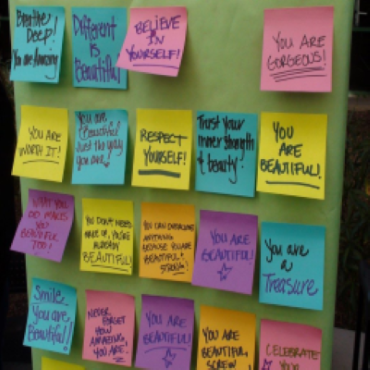 Breathe
Deep!
You are Amazing
Different
is
Beautiful
BELIEVE
IN
YOURSELF!
YOU ARE
GORGEOUS!
YOU ARE
WORTH IT!
You are
Beautiful
Just the way
you are!
RESPECT
YOURSELF!
Trust your
inner strength
& beauty!
YOU ARE
BEAUTIFUL!
WHAT YOU
DO MAKES
YOU
BEAUTIFUL
TOO!
YOU DON'T NEED
MAKE UP, YOU'RE
ALREADY
BEAUTIFUL
YOU CAN OVERCOME
ANYTHING
BECAUSE YOU ARE
BEAUTIFUL &
STRONG!
YOU ARE
BEAUTIFUL
You are
a
Treasure
Smile
You are
Beautiful!
NEVER
FORGET
HOW
AMAZING
YOU ARE.
YOU ARE
BEAUTIFUL
YOU ARE
BEAUTIFUL,
SCREW
CELEBRATE
YOUR